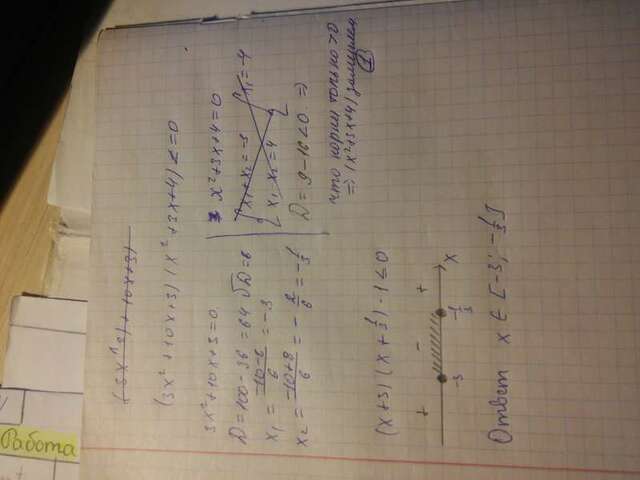 Работа
(3x^2) + 10x+3)
(3x² + 10x+3) (x² + 3x+4) <=0
3x²+10x+3=0
D=100-36 =64 √D=8
x₁ = (-10-8)/6 = -3
x₂ = (-10+8)/6 = - 2/6 = -1/3
x²+3x+4=0
x₁+x₂=-3
x₁ x₂=4
x₁=-4
D = 9-16<0 =>
что корни только >0
=> (x²+3x+4) заменяем
1
(x+3) (x+ 1/3) · 1 ≤0
+ - +
-3 -1/3 x
Ответ x ∈ [-3; -1/3]